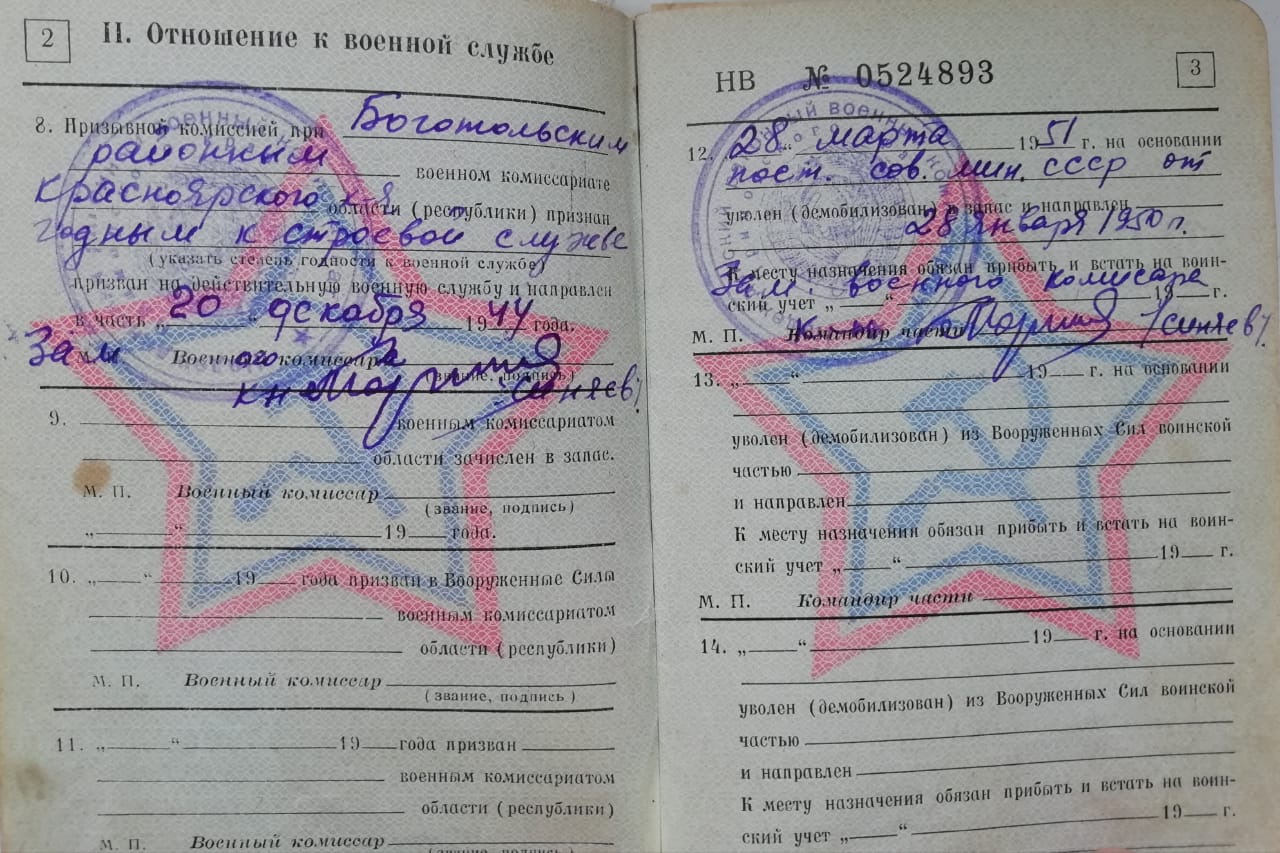 2
II. Отношение к военной службе
8. Призывной комиссией при Боготольским
районным военном комиссариате
Красноярского области (республики) признан
годным к строевой службе
(указать степень годности к военной службе)
призван на действительную военную службу и направлен
в часть „20“ декабря 1944 года.
Зам. Военного комиссара
(звание, подпись)
Синяев)
9. военным комиссариатом
области зачислен в запас.
М. П. Военный комиссар
(звание, подпись)
„ “ 19 года.
10. „ “ 19 года призван в Вооруженные Силы
военным комиссариатом
области (республики)
М. П. Военный комиссар
(звание, подпись)
11. „ “ 19 года призван
военным комиссариатом
области (республики)
М. П. Военный комиссар
(звание, подпись)
НВ № 0524893
3
12. „28“ марта 1951 г. на основании
пост. сов. мин. СССР от
уволен (демобилизован) в запас и направлен
28 января 1950 г.
К месту назначения обязан прибыть и встать на воин-
Зам. военного комисара
ский учет „ “ 19 г.
М. П. Командир части (Синяев).
13. „ “ 19 г. на основании
уволен (демобилизован) из Вооруженных Сил воинской
частью
и направлен
К месту назначения обязан прибыть и встать на воин-
ский учет „ “ 19 г.
М. П. Командир части
14. „ “ 19 г. на основании
уволен (демобилизован) из Вооруженных Сил воинской
частью
и направлен
К месту назначения обязан прибыть и встать на воин-
ский учет „ “ 19 г.